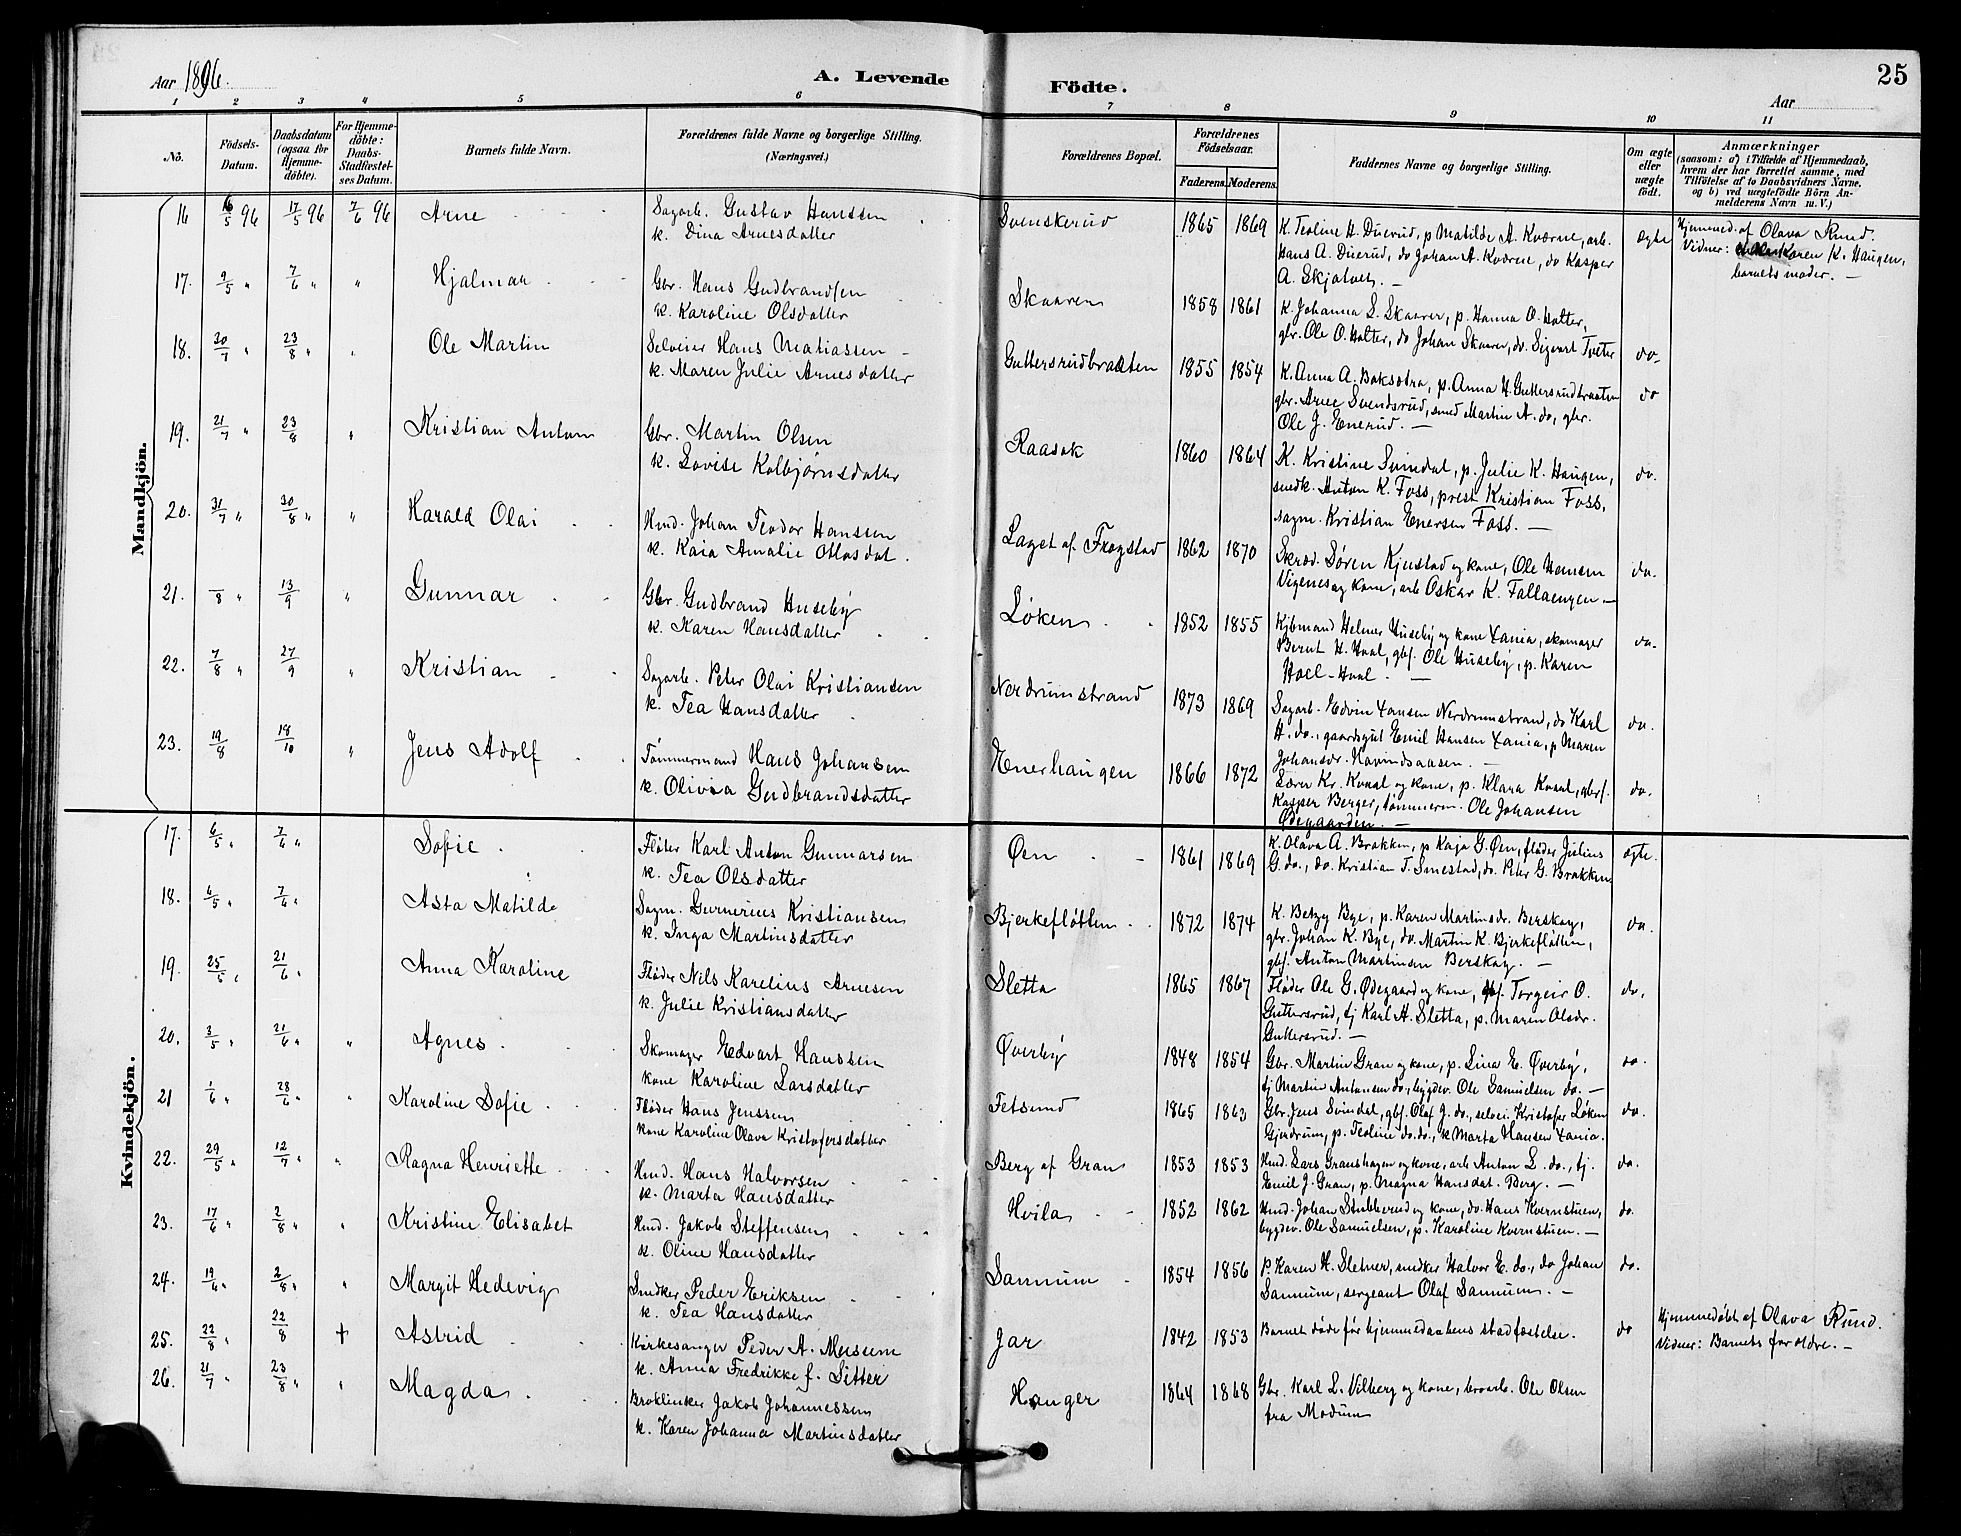 Aar 1896.
A. Levende Födte.
25
Aar
1 2 3 4 5 6 7 8 9 10 11
No.
Födsels-Datum.
Daabsdatum (ogsaa for Hjemme-döbte).
For Hjemme-döbte: Daabs-Stadfæstel-ses Datum.
Barnets fulde Navn.
Forældrenes fulde Navne og borgerlige Stilling.
(Næringsvei.)
Forældrenes Bopæl.
Forældrenes Födselsaar.
Faderens. Moderens.
Faddernes Navne og borgerlige Stilling.
Om ægte eller uægte födt.
Anmærkninger
(saasom: a) i Tilfælde af Hjemmedaab,
hvem der har forrettet samme, med
Tilföielse af to Daabsvidners Navne.
og b) ved uægtefödte Börn An-
melderens Navn m. V.)
Mandkjön.
16 16/5 96 17/5 96 7/6 96 Arne
Sagarb. Gustav Hanssen
k. Dina Arnesdatter
Svenskerud 1865 1869
K. Teoline H. Duerud, p. Matilde A. Kværne, arb.
Hans A. Duerud, do Johan A. Kværne, do Kasper
A. Skjatvet. —
Ægte
Hjemmed. af Olava Rund.
Vidner: Karen K. Haugen,
barnets moder. —
17. 9/5 " 7/6 " " Hjalmar
Gbr. Hans Gudbrandsen
k. Karoline Olsdatter
Skaaren 1858 1861
K. Johanna L. Skaarer, p. Hanna O. Holter,
gbr. Ole O. Holter, do Johan Skaarer, do. Sigvart Tveter
do.
18. 30/7 " 23/8 " " Ole Martin
Selveier Hans Matiassen
k. Maren Julie Arnesdatter
Guttersrudbraaten 1855 1854
K. Anna A. Baksætra, p. Anna H. Guttersrudbraaten
gbr. Arne Svendsrud, smed Martin A. do, gbr.
Ole J. Enerud. —
do
19. 21/7 " 23/8 " Kristian Anton
Gbr. Martin Olsen
k. Lovise Kolbjørnsdatter
Raasok 1860 1864
K. Kristine Svindal, p. Julie K. Haugen,
snedk. Anton K. Foss, prest Kristian Foss,
sagm. Kristian Enersen Foss. —
do.
20. 31/7 " 30/8 " " Harald Olai
Hmd. Johan Teodor Hanssen
k. Kaia Amalie Olsdat.
Laget af Frogstad 1862 1870
Skræd. Søren Kjustad og kone, Ole Hansen
Vigenes og kone, arb Oskar K. Fallaengen —
do.
21. /8 " 13/9 " Gunnar
Gbr. Gudbrand Huseby
k. Karen Hansdatter
Løken 1852 1855
Kjøbmand Helmer Huseby og kone Xania, skomager
Bernt H. Hval, gbs. Ole Huseby, p. Karen
Hoel-Hval. —
do.
22. 7/8 " 27/9 " Kristian
Sagarb. Peter Olai Kristiansen
k. Tea Hansdatter
Nordrumstrand 1873 1869
Sagarb. Edvin Hansen Nerdrumstrand, do Karl
H. do., gaardsgut Emil Hansen Xania, p. Maren
Johansdr. Havindsaasen. —
do.
23. 19/8 18/10 " Jens Adolf
Tømmermand Hans Johansen
k. Olivia Gudbrandsdatter
Enerhaugen 1866 1872
Lærer Kr. Kvaal og kone, p. Klara Kvaal, gbrs.
Kasper Berger, tømmerm. Ole Johansen
Ødegaarden. —
do.
Kvindekjön.
17. 6/5 " 7/6 " Sofie
Fløter Karl Anton Gunnarsen
k. Tea Olsdatter
Øen 1861 1869
K. Olava A. Brakken, p Kaja G. Øen, fløder Julius
G. do., do. Kristian T. Smestad, do. Peter G. Brakken
Ægte.
18. 6/5 " 7/6 " Asta Matilde
Sagm. Gunerius Kristiansen
k. Inga Martinsdatter
Bjerkefløtten 1872 1874
K. Betzy Bye, p. Karen Martinsdr. Berskog,
gbr. Johan K. Bye, do. Martin K. Bjerkefløtten,
gbs. Anton Martinsen Berskog. —
do.
19. 25/5 " 21/6 " Anna Karoline
Fløder Nils Karelius Arnesen
k. Julie Kristiansdatter
Sletta 1865 1867
Fløder Ole G. Ødegaard og kone, gbs. Torgeir O.
Guttersrud, tj Karl A. Sletta, p. Maren Olsdr.
Guttersrud. —
do.
20. 3/5 " 21/6 " " Agnes
Skomager Edvart Hanssen
kone Karoline Larsdatter
Øverby 1848 1854
Gbr. Martin Gran og kone, p. Lina E. Øverby,
tj Martin Antonsen do., bygdev. Ole Samuelsen do. —
do.
21 1/6 " 28/6 " " Karoline Sofie
Fløder Hans Jenssen
kone Karoline Olava Kristofersdatter
Fetsund 1865 1863
Gbr. Jens Svindal, gbs. Olaf J. do., selvei. Kristofer Løken
Gjerdrum, p. Teoline do. do., k Marta Hansen Xania.
do.
22. 29/5 " 12/7 " " Ragna Henriette
Hmd. Hans Halvorsen
k. Marta Hansdatter
Berg af Gran 1853 1853
Hmd. Lars Granshagen og kone, arb Anton L. do., tj.
Emil J. Gran, p. Magna Hansdat. Berg. —
do.
23. 17/6 " 2/8 " " Kristine Elisabet
Hmd. Jakob Steffensen
k. Oline Hansdatter
Hvila 1852 1862
Hmd. Johan Stubberud og kone, do. Hans Kvernstuen,
bygdev. Ole Samuelsen, p. Karoline Kvernstuen. —
do.
24. 19/6 " 2/8 " " Margit Hedevig
Snedker Peder Eriksen
k. Tea Hansdatter
Sannum 1854 1856
P. Karen H. Sletner, snedker Halvor E. do., do Johan
Sannum, sergeant Olaf Sannum. —
do.
25. 22/8 " 22/8 + Astrid
Kirkesanger Peder A. Musum
k. Anna Fredrikke f. Sitter
Jar 1842 1853
Barnet døde før hjemmedaabens stadfæstelse.
do
Hjemmedøbt af Olava Rund.
Vidner: Barnets forældre. —
26. 21/7 " 23/8 " " Magda
Broklinker Jakob Johannessen
k. Karen Johanna Martinsdatter
Hanger 1864 1868
Gbr. Karl L. Vilberg og kone, broarb. Ole Olsen
fra Modum